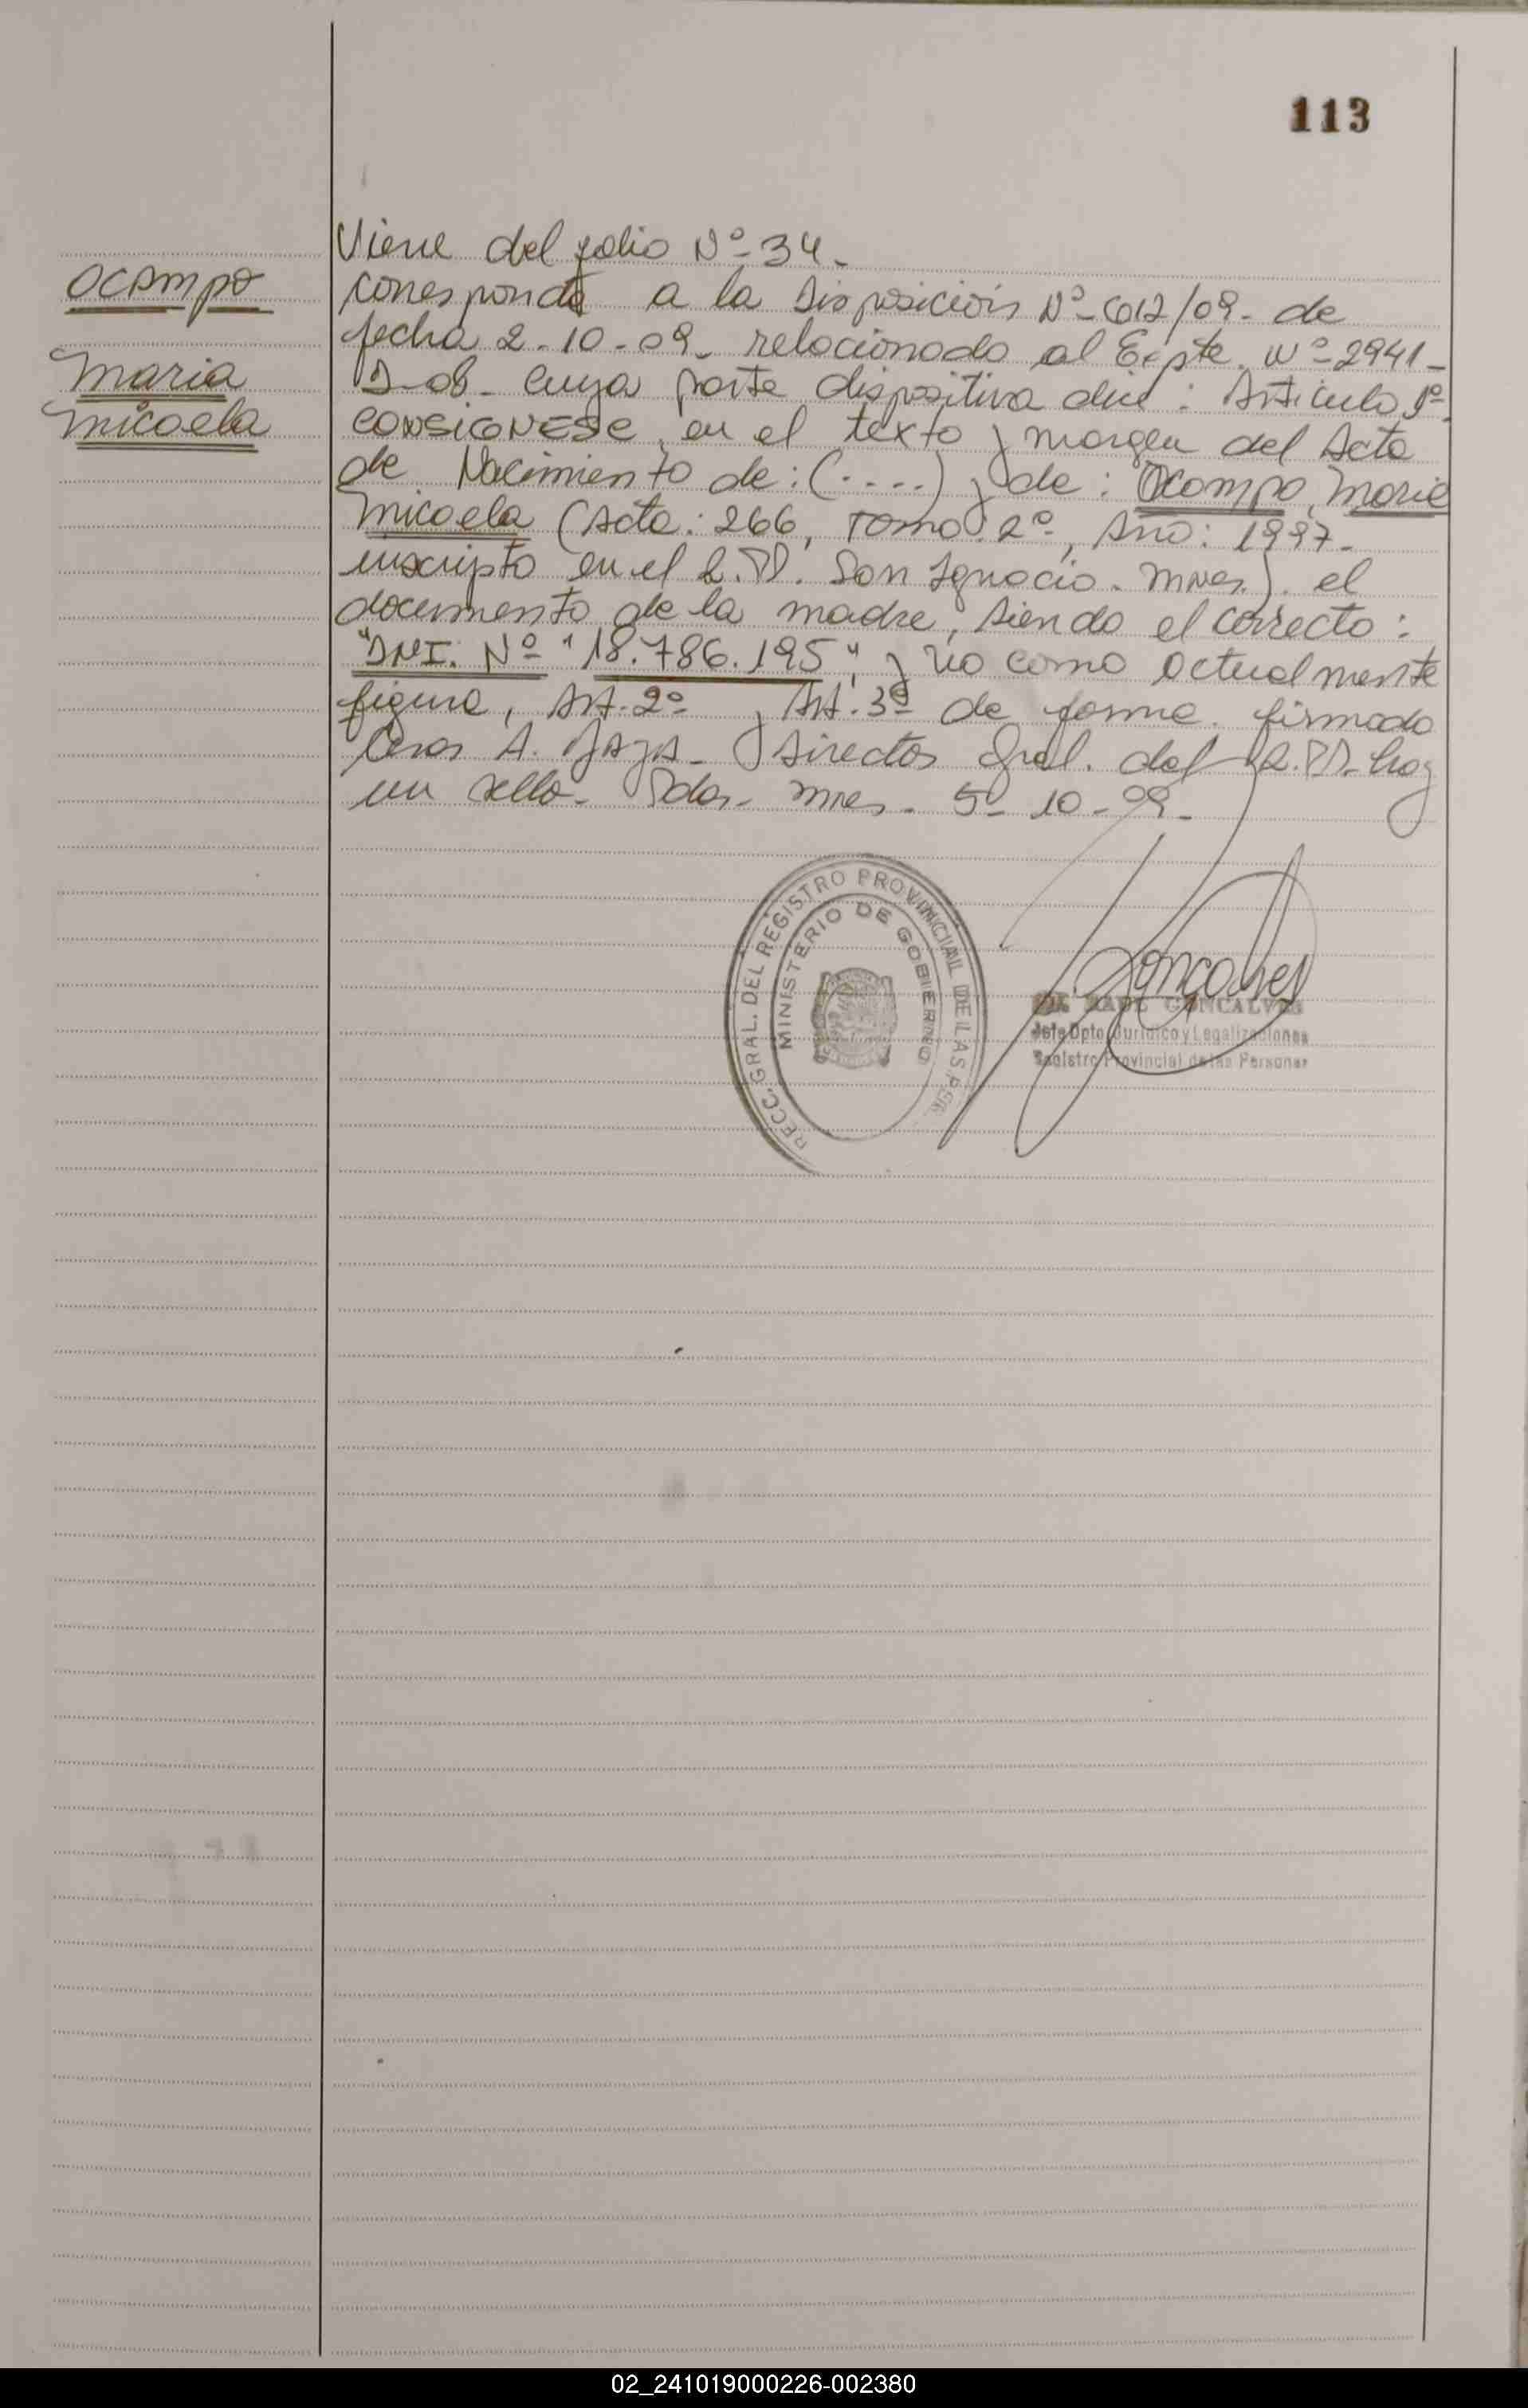 113
Viene del folio Nº 34-
Ocampo
Corresponde a la Disposición Nº 612/09- de
fecha 2-10-09- relacionado al Expte. Nº 2941-
Maria
D-08- cuya parte dispositiva dice: Articulo 1º
Micaela
CONSIGNESE, en el texto y margen del Acta
de Nacimiento de: (....) y de: Ocampo, Maria
Micaela (Acta: 266, Tomo: 2º, Año: 1997-
inscripto en el R.PP. San Ignacio. Mnes). el
documento de la madre, siendo el correcto:
"DNI. Nº "18.786.195", y no como actualmente
figura, Art. 2º y Art. 3º de forma. firmado
A. Director Gral. del R.PP. hay
un sello- Pdas- Mnes- 5-10-09-
RECC. GRAL. DEL REGISTRO PROVINCIAL DE LAS PER
MINISTERIO DE GOBIERNO
RAUL GONCALVES
Jefe Dpto. Jurídico y Legalizaciones
Registro Provincial de las Personas
02_241019000226-002380